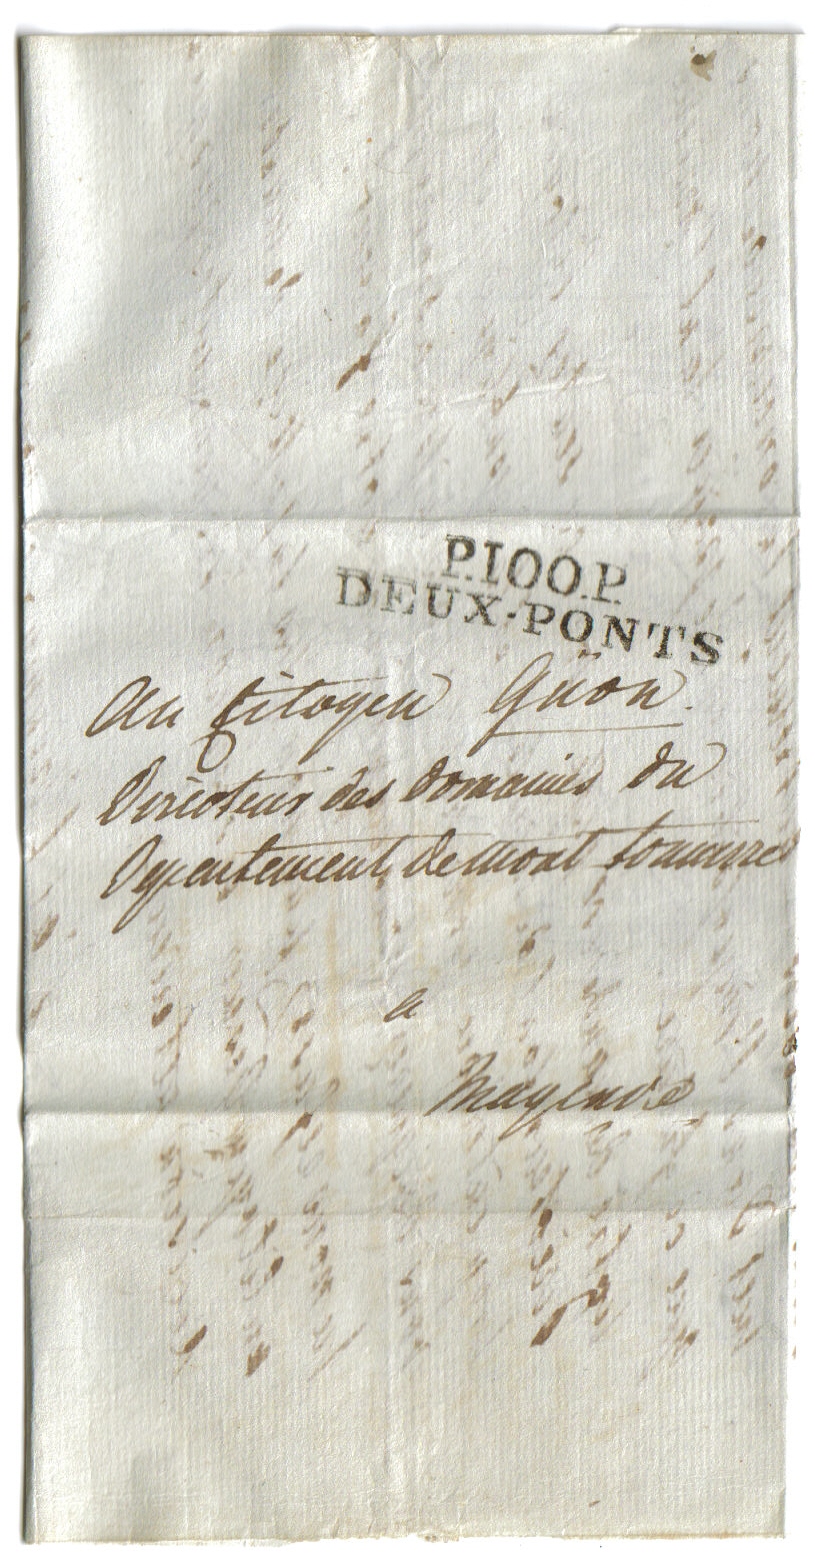 P.100.P.
DEUX-PONTS
Au Citoyen Güon.
Directeur des domaines du
Departement de mont tonnerre
a
Mayence